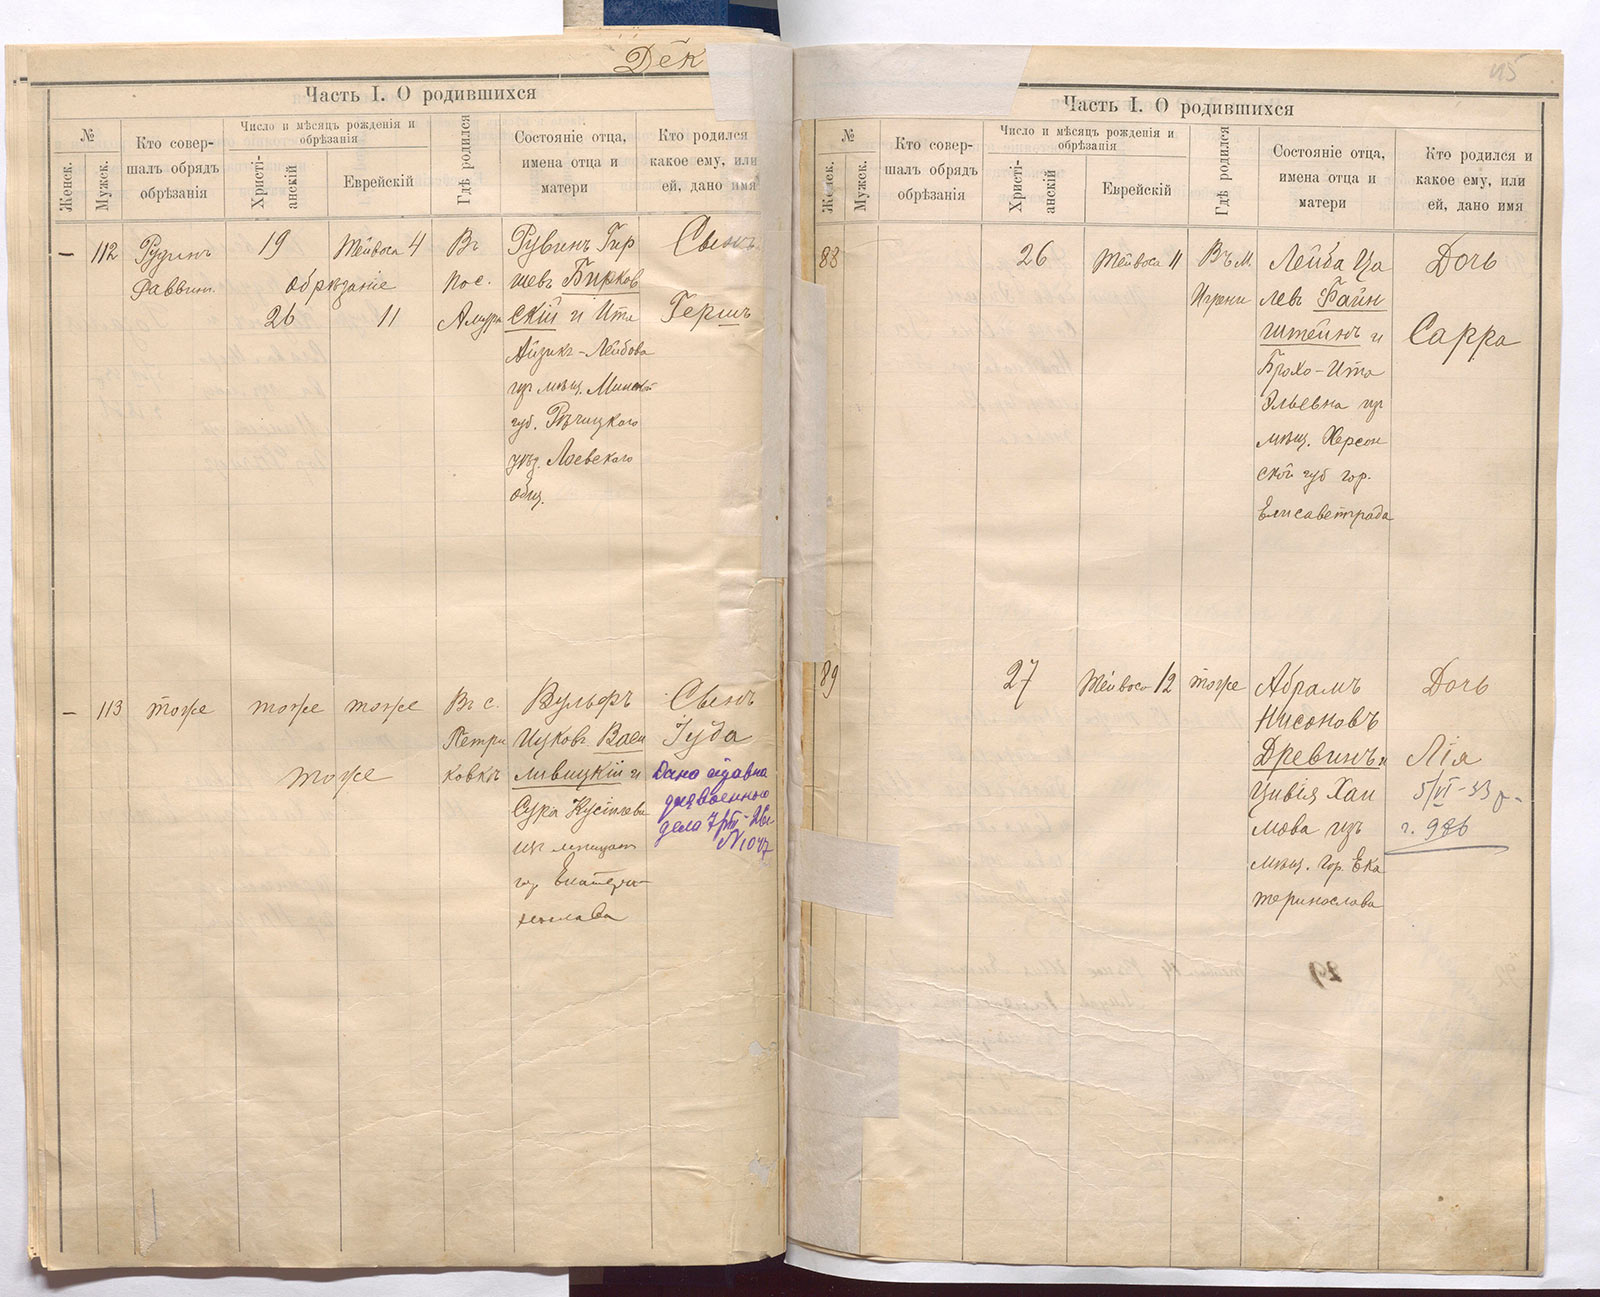 Дек
Часть I. О родившихся
№
Женск.
Мужск.
Кто совер-
шалъ обрядъ
обрѣзанія
Число и мѣсяцъ рожденія и
обрѣзанія
Христі-
анскій
Еврейскій
Гдѣ родился
Состояніе отца,
имена отца и
матери
Кто родился
какое ему, или
ей, дано имя
– 112
Раввин.
19
Тейвоса 4
обрѣзаніе
26 11
Въ
пос.
Амурѣ
Рувинъ Гир
шевъ Бирков
скій и Ита
Айзикъ-Лейбова
изъ мѣщ. Минской
губ. Рѣчицкаго
уѣзд. Лоевскаго
общ.
Сынъ
Гершъ
– 113
тоже
тоже
тоже
тоже
Въ с.
Петри
ковкѣ
Вульфъ
Ицковъ Васи
ливицкій и
Сура
изъ мѣщанъ
гор. Екатери
нослава
Сынъ
Іуда
Дана
для военного
дела
№ 1047
115
Часть I. О родившихся
№
Женск.
Мужск.
Кто совер-
шалъ обрядъ
обрѣзанія
Число и мѣсяцъ рожденія и
обрѣзанія
Христі-
анскій
Еврейскій
Гдѣ родился
Состояніе отца,
имена отца и
матери
Кто родился и
какое ему, или
ей, дано имя
88
26
Тейвоса 11
Въ м.
Игрени
Лейба Ца
левъ Файн
штейнъ и
Брохо-Ита
Эльевна изъ
мѣщ. Херсон
ской губ. гор.
Елисаветграда
Дочь
Сарра
89
27
Тейвоса 12
тоже
Абрамъ
Нисоновъ
Древинъ и
Цивія Хаи
мова изъ
мѣщ. гор. Ека
теринослава
Дочь
Лія
5/VI-33 г.
г. 986